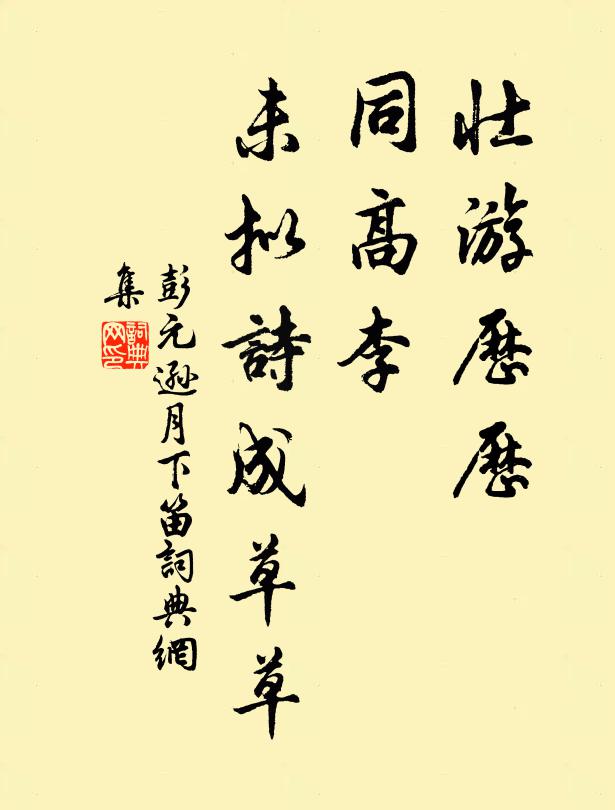 壮游歷歷
同高李
未拟詩成草草
彭元遜月下笛詞典網
集
詞典
网印